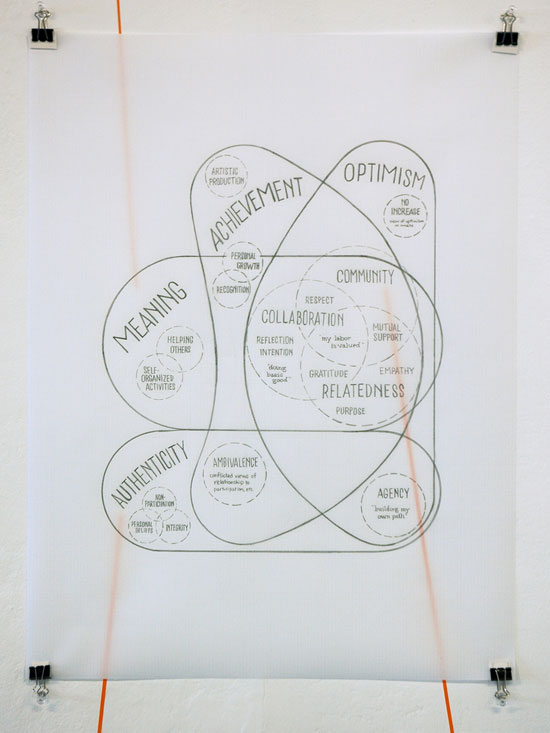 ARTISTIC
PRODUCTION
ACHIEVEMENT
OPTIMISM
NO
INCREASE
PERSONAL
GROWTH
RECOGNITION
COMMUNITY
RESPECT
COLLABORATION
"my labor
is valued"
MUTUAL
SUPPORT
REFLECTION
INTENTION
"doing
basic
good"
GRATITUDE
EMPATHY
RELATEDNESS
PURPOSE
MEANING
HELPING
OTHERS
SELF-
ORGANIZED
ACTIVITIES
AUTHENTICITY
NON-
PARTICIPATION
PERSONAL
BELIEFS
INTEGRITY
AMBIVALENCE
conflicted views of
relationship to
participation, etc.
AGENCY
"building my
own path"